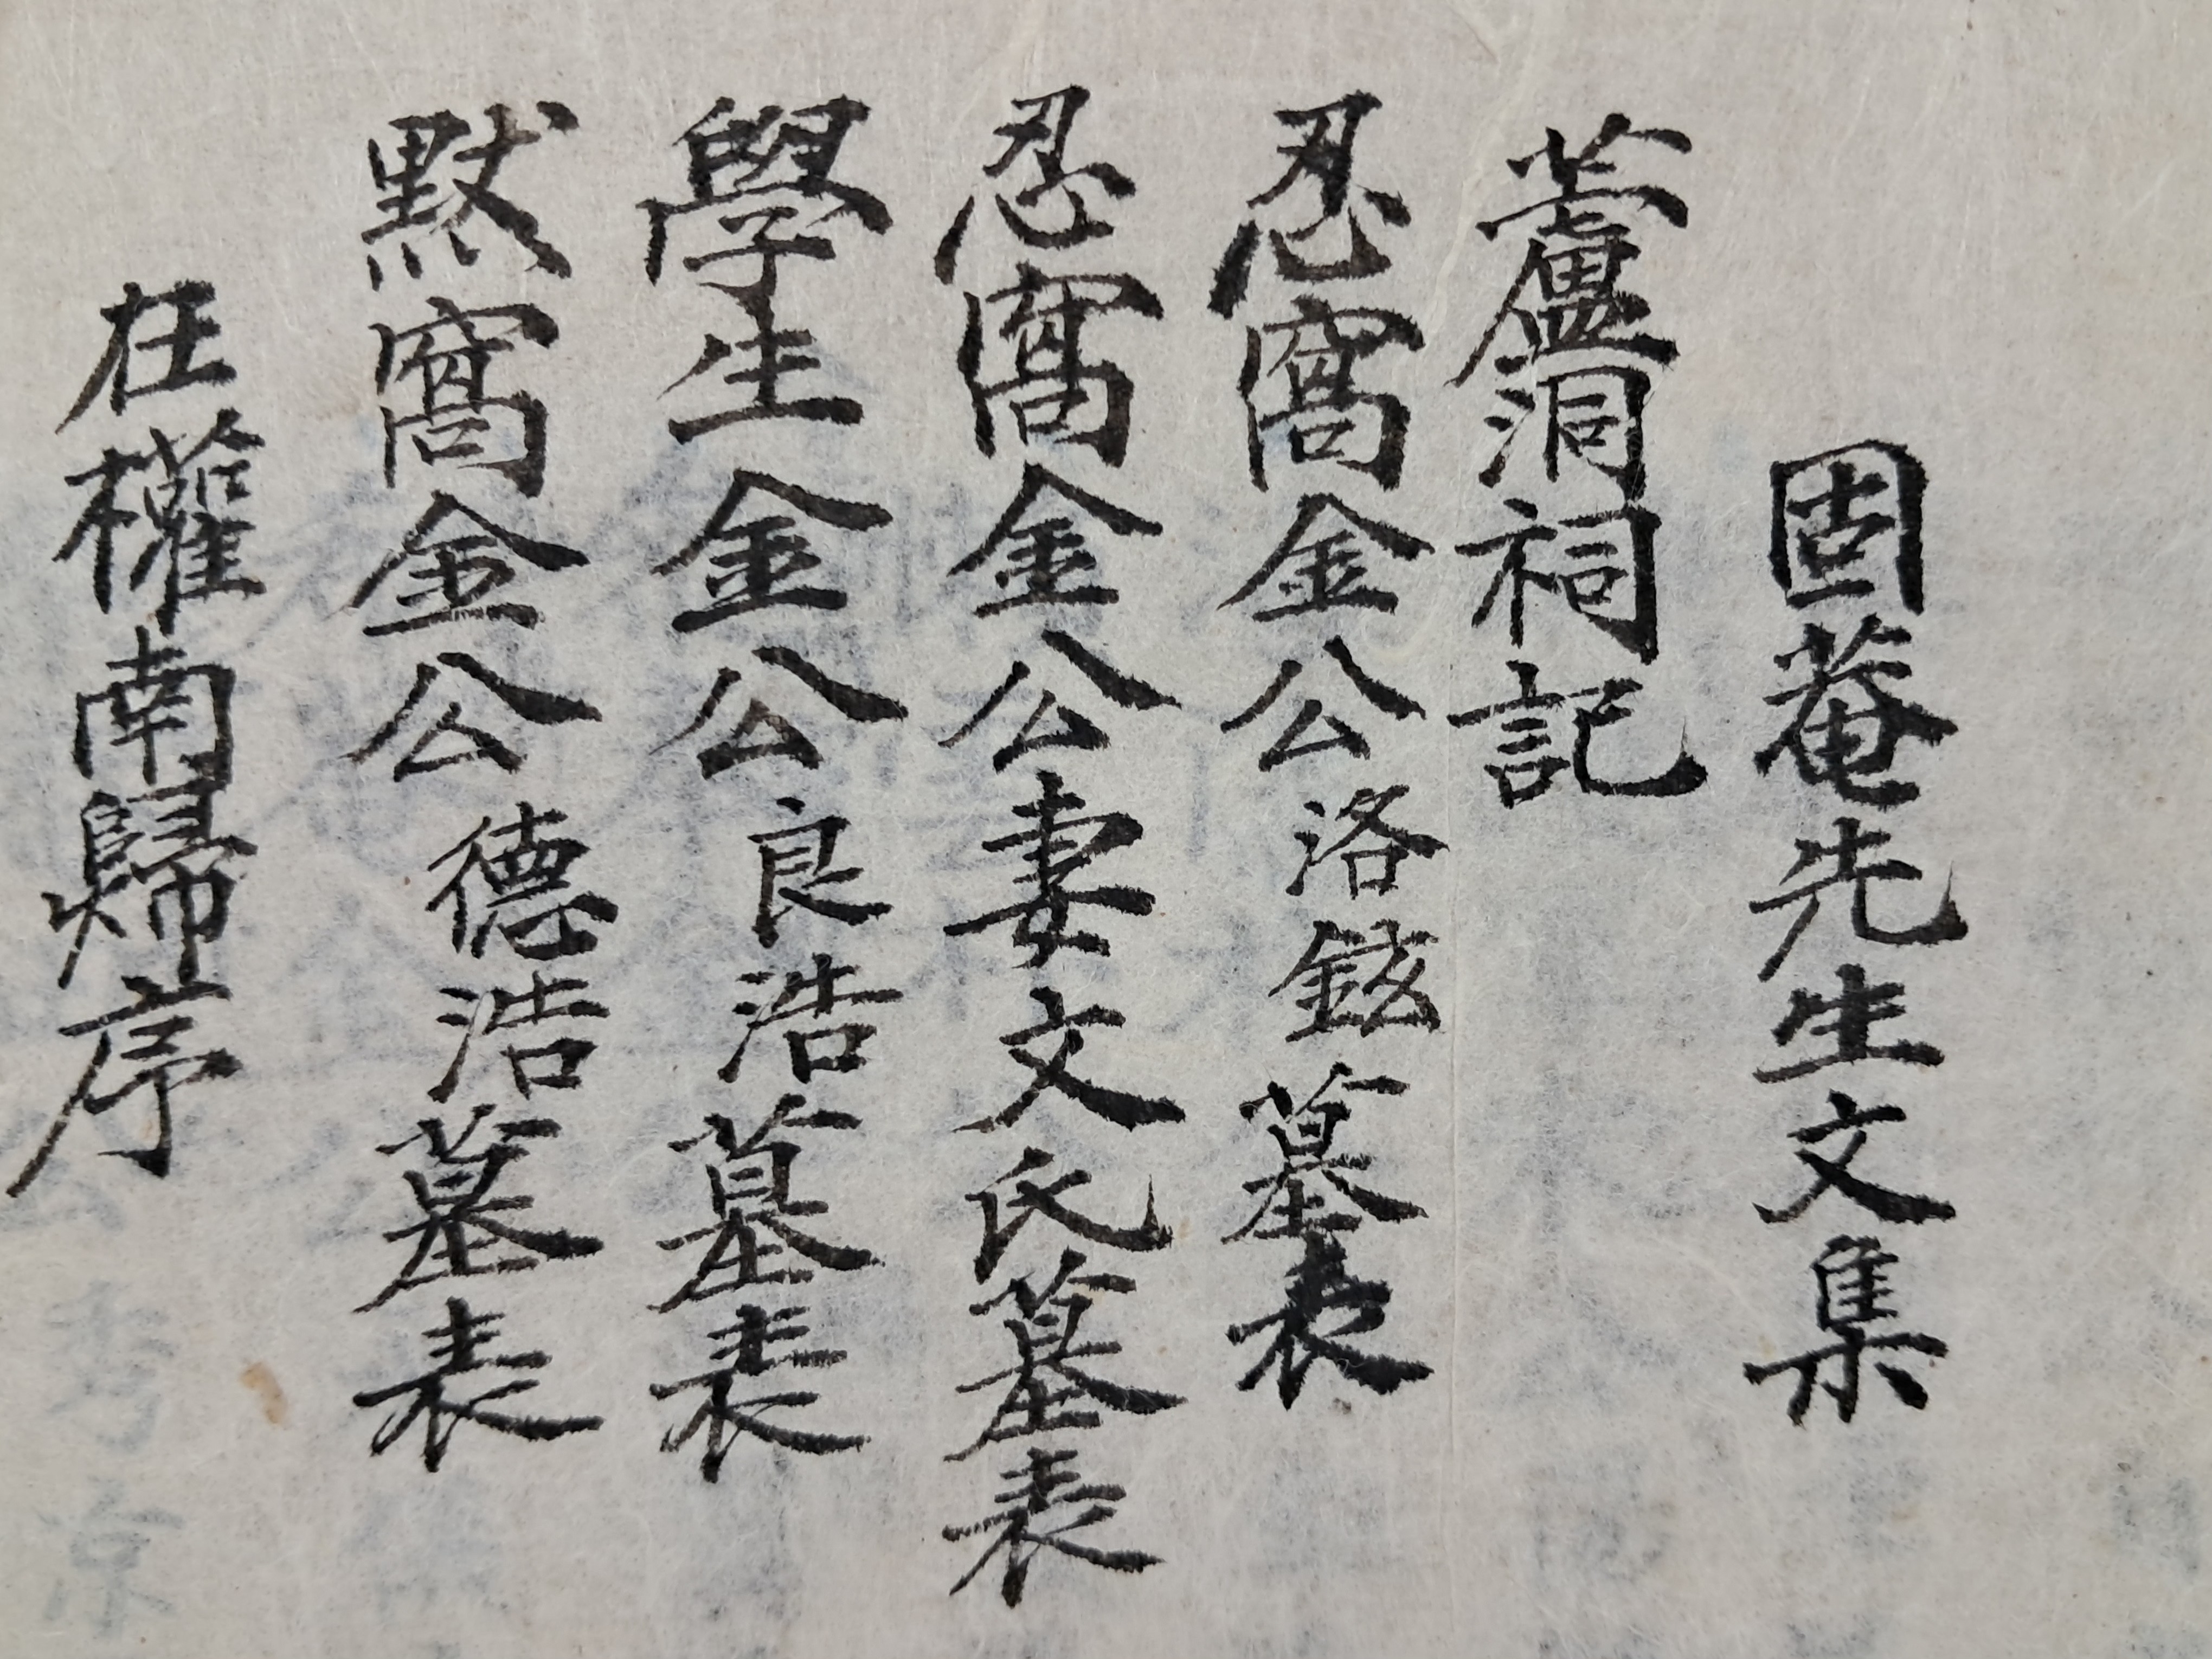 固菴先生文集
蘆洞祠記
忍窩金公洛鉉墓表
忍窩金公妻文氏墓表
學生金公良浩墓表
默窩金公德浩墓表
在權南歸序